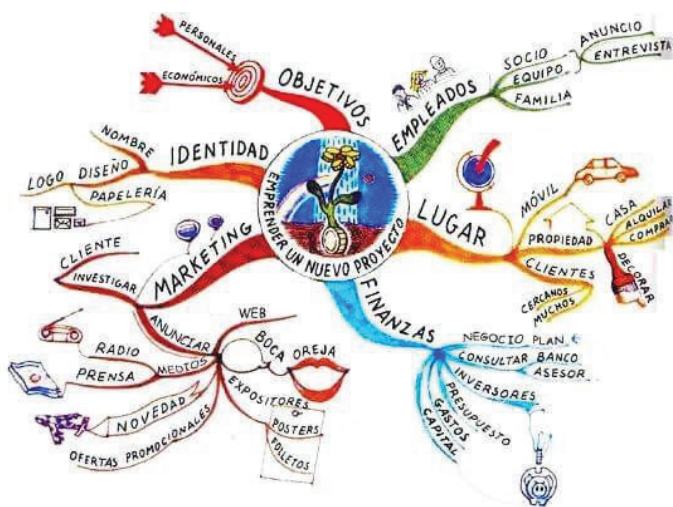 EMPRENDER UN NUEVO PROYECTO
OBJETIVOS
PERSONALES
ECONÓMICOS
EMPLEADOS
SOCIO
EQUIPO
FAMILIA
ANUNCIO
ENTREVISTA
LUGAR
MÓVIL
PROPIEDAD
CASA
ALQUILAR
COMPRAR
DECORAR
CLIENTES
CERCANOS
MUCHOS
FINANZAS
NEGOCIO PLAN
CONSULTAR BANCO
ASESOR
INVERSORES
PRESUPUESTO
GASTOS
CAPITAL
MARKETING
CLIENTE
INVESTIGAR
ANUNCIAR
WEB
BOCA
OREJA
MEDIOS
RADIO
PRENSA
NOVEDAD
OFERTAS PROMOCIONALES
EXPOSITORES
POSTERS
FOLLETOS
IDENTIDAD
NOMBRE
LOGO DISEÑO
PAPELERÍA